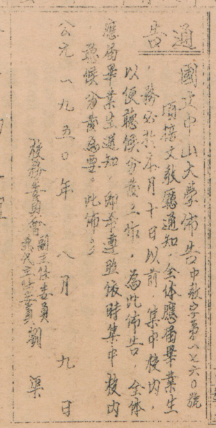 通告
國立中山大學佈告中教字第八七六〇號
頃接文教廳通知，全体應屆畢業生
務必於本月十日以前，集中校內，
以便聽候分發工作，為此佈告，全体
應屆畢業生通知，即希遵照依時集中校內
聽候分發為要，此佈。
公元一九五〇年八月九日
副主任委員
代主任委員 劉渠